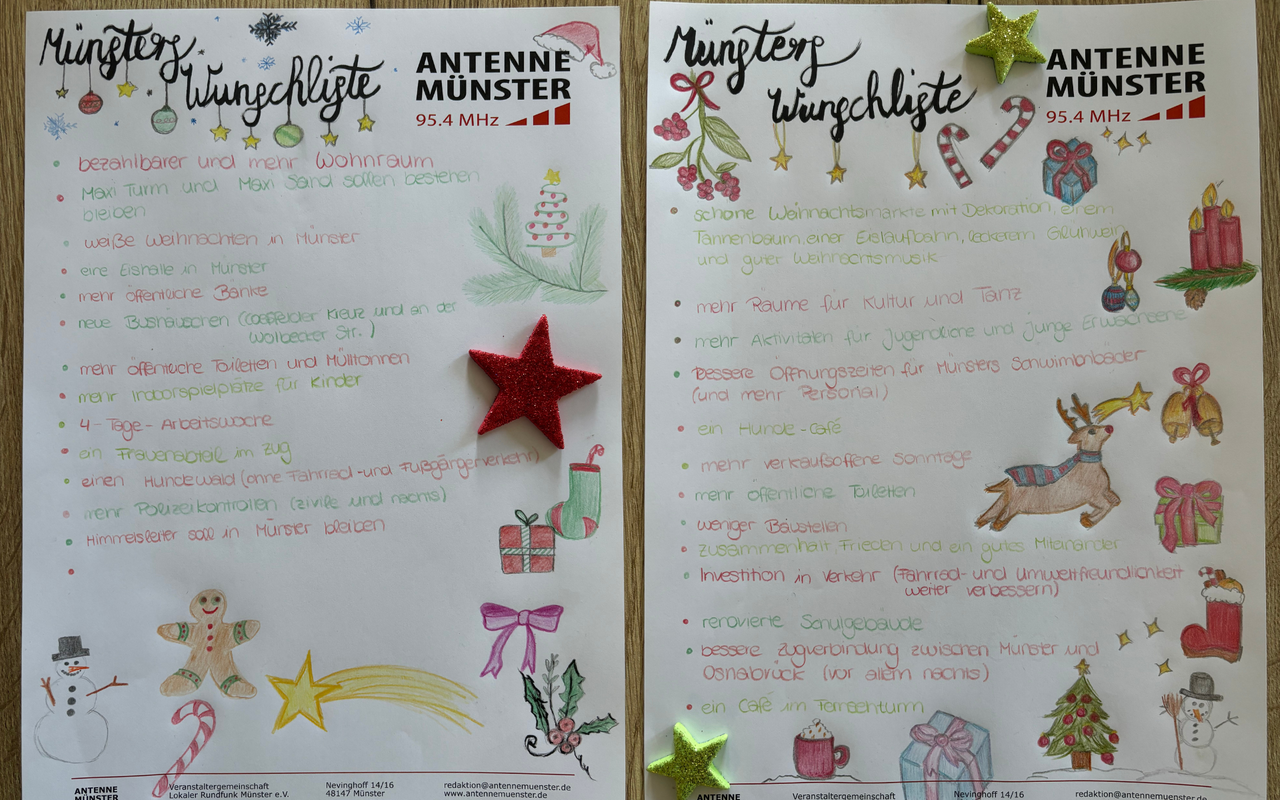 Münsters
Wunschliste
ANTENNE
MÜNSTER
95.4 MHz
bezahlbarer und mehr Wohnraum
Maxi Turm und Maxi Sand sollen bestehen
bleiben
weiße Weihnachten in Münster
eine Eishalle in Münster
mehr öffentliche Bänke
neue Bushäuschen (Coesfelder Kreuz und an der
Wolbecker Str.)
mehr öffentliche Toiletten und Mülltonnen
mehr Indoorspielplätze für Kinder
4-Tage-Arbeitswoche
ein Frauenabteil im Zug
einen Hundewald (ohne Fahrrad- und Fußgängerverkehr)
mehr Polizeikontrollen (zivile und nachts)
Himmelsleiter soll in Münster bleiben
ANTENNE
MÜNSTER
Veranstaltergemeinschaft
Lokaler Rundfunk Münster e.V.
Nevinghoff 14/16
48147 Münster
redaktion@antennemuenster.de
www.antennemuenster.de
Münsters
Wunschliste
ANTENNE
MÜNSTER
95.4 MHz
schöne Weihnachtsmärkte mit Dekoration, einem
Tannenbaum, einer Eislaufbahn, leckerem Glühwein
und guter Weihnachtsmusik
mehr Räume für Kultur und Tanz
mehr Aktivitäten für Jugendliche und junge Erwachsene
bessere Öffnungszeiten für Münsters Schwimmbäder
(und mehr Personal)
ein Hunde-Café
mehr verkaufsoffene Sonntage
mehr öffentliche Toiletten
weniger Baustellen
Zusammenhalt, Frieden und ein gutes Miteinander
Investition in Verkehr (Fahrrad- und Umweltfreundlichkeit
weiter verbessern)
renovierte Schulgebäude
bessere Zugverbindung zwischen Münster und
Osnabrück (vor allem nachts)
ein Café im Fernsehturm
ANTENNE
Veranstaltergemeinschaft
Nevinghoff 14/16
redaktion@antennemuenster.de